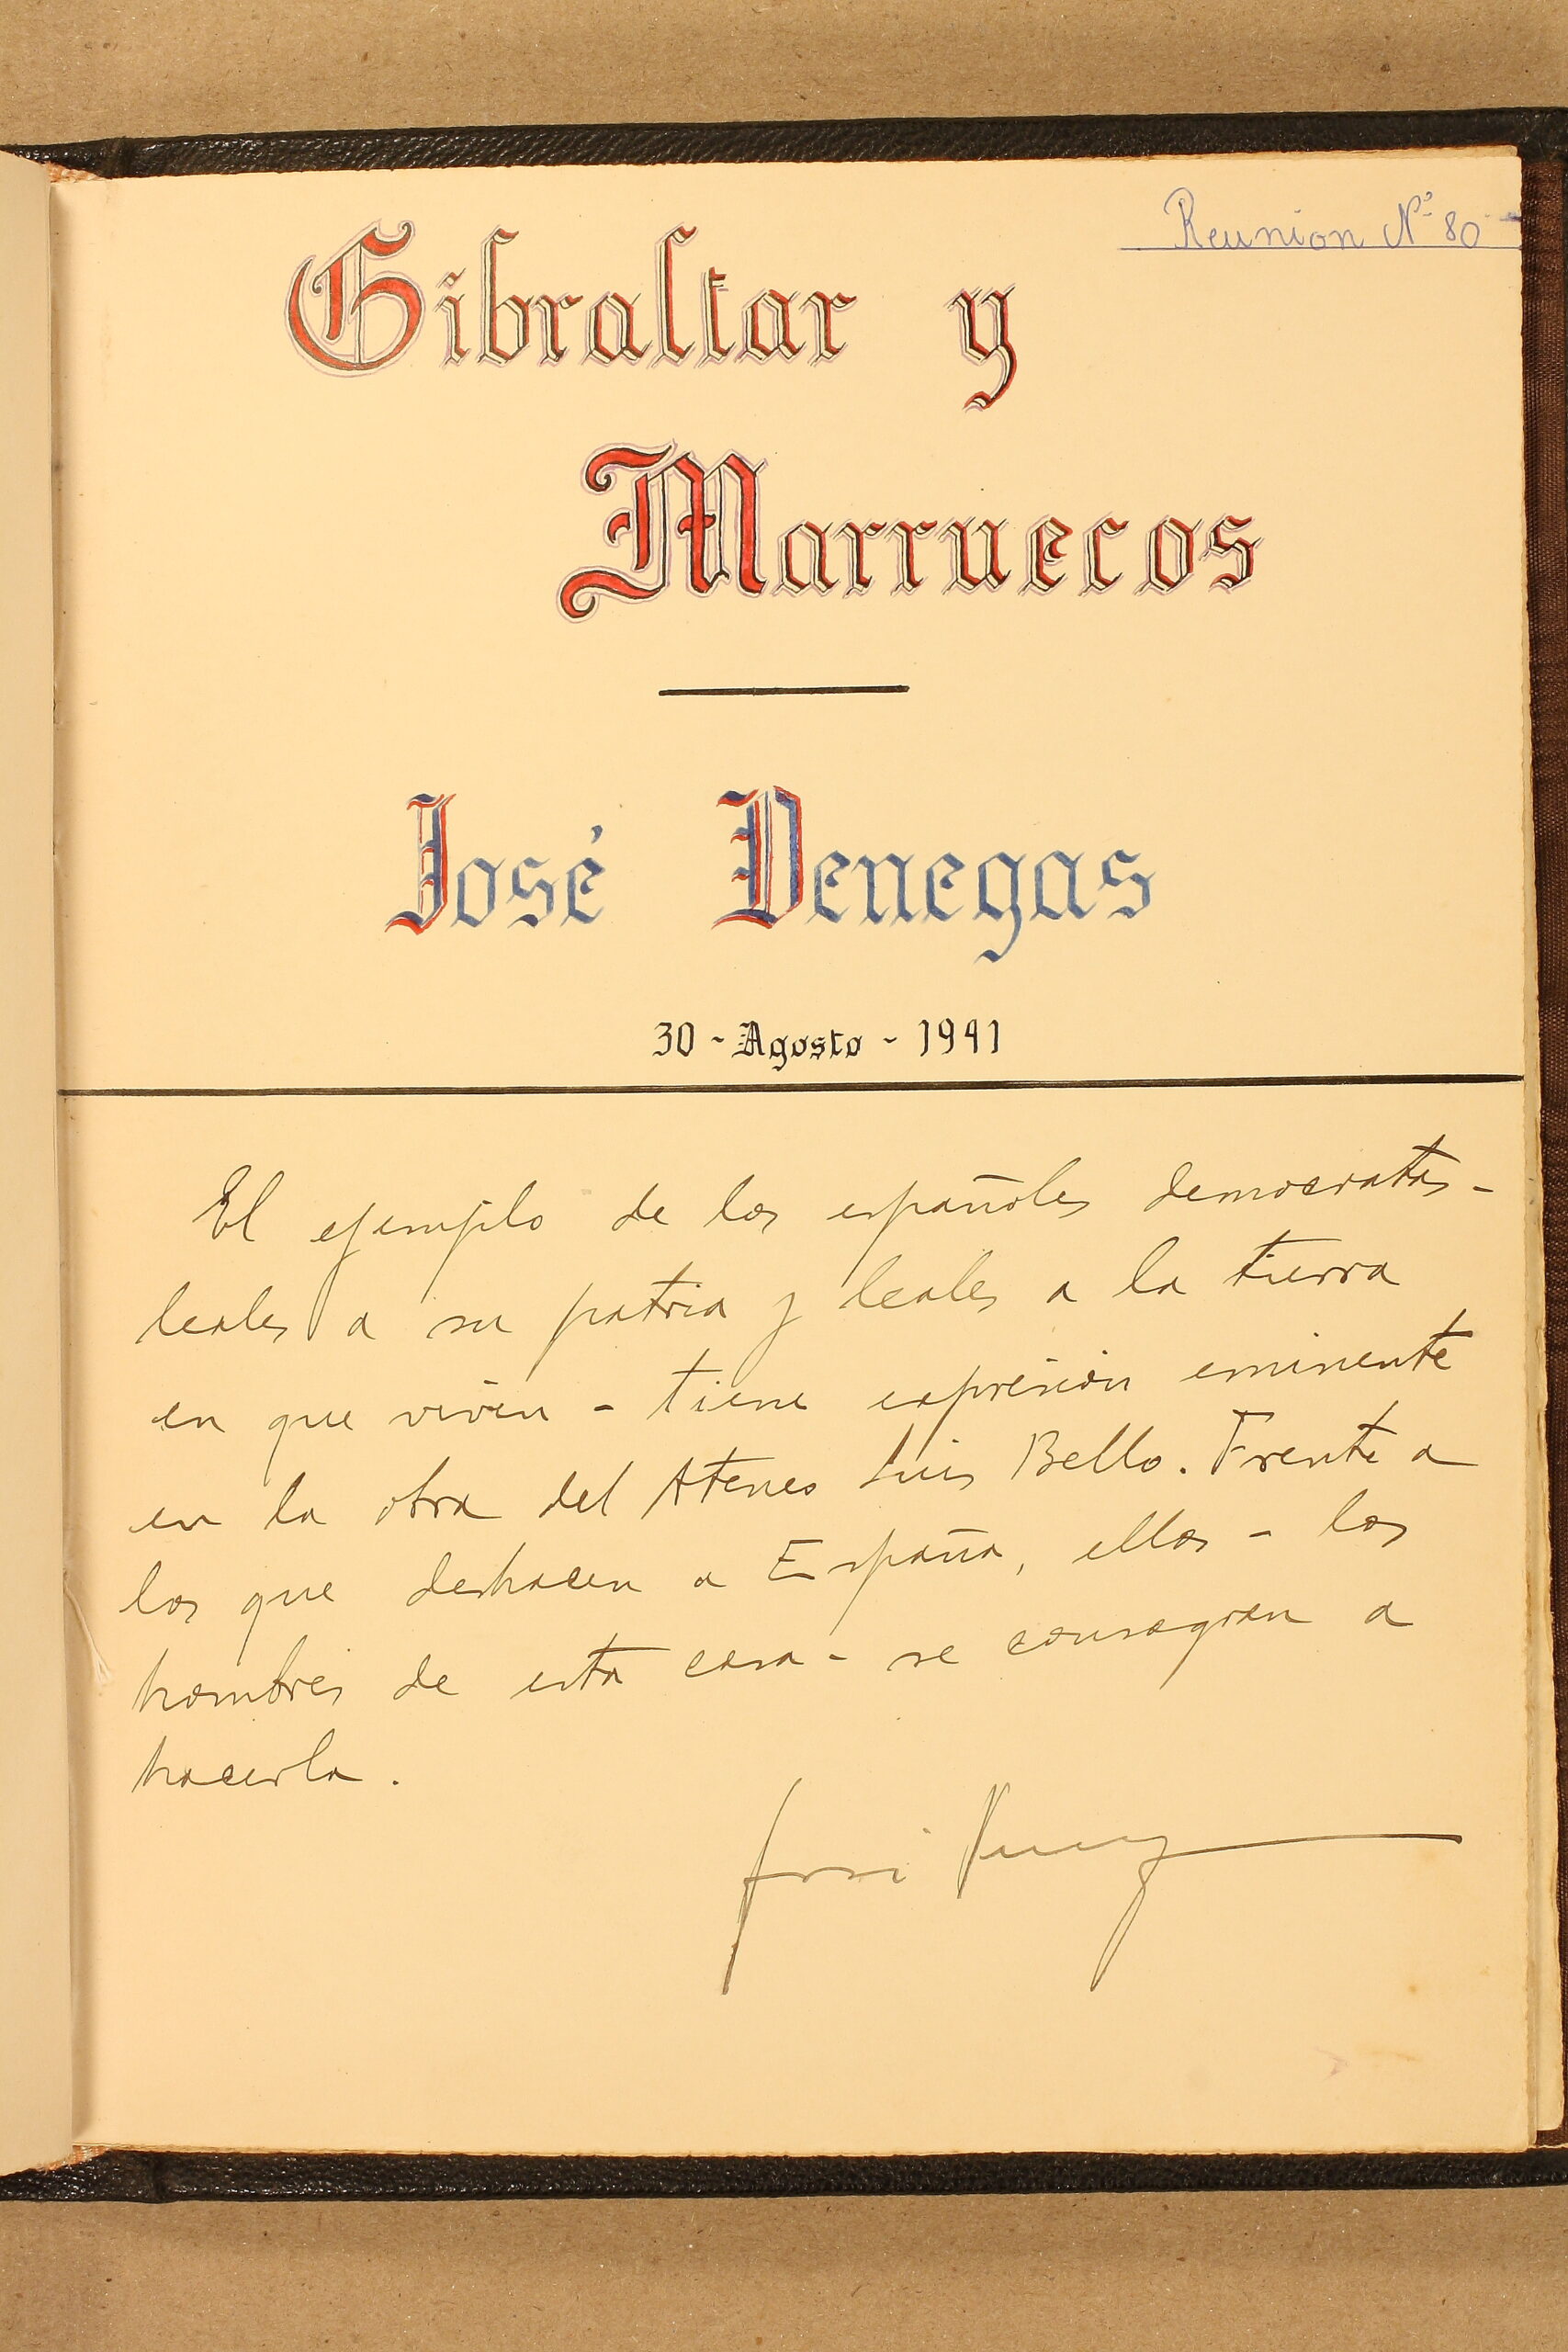 Reunion Nº 80
Gibraltar y
Marruecos
José Venegas
30 - Agosto - 1941
El ejemplo de los españoles demócratas -
leales a su patria y leales a la tierra
en que viven - tiene expresión eminente
en la obra del Ateneo Luis Bello. Frente a
los que deshacen a España, ellos - los
hombres de esta casa - se consagran a
hacerla.
José Venegas